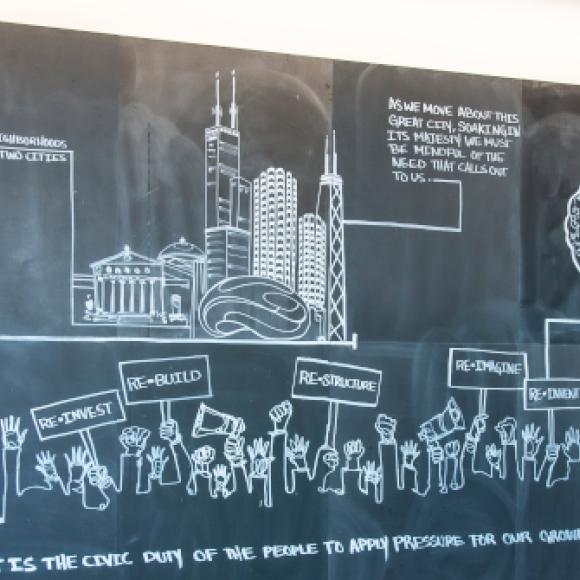 TWO CITIES
AS WE MOVE ABOUT THIS
GREAT CITY, SOAKING IN
ITS MAJESTY WE MUST
BE MINDFUL OF THE
NEED THAT CALLS OUT
TO US.
RE-INVEST
RE-BUILD
RE-STRUCTURE
RE-IMAGINE
RE-INVENT
IS THE CIVIC DUTY OF THE PEOPLE TO APPLY PRESSURE FOR OUR